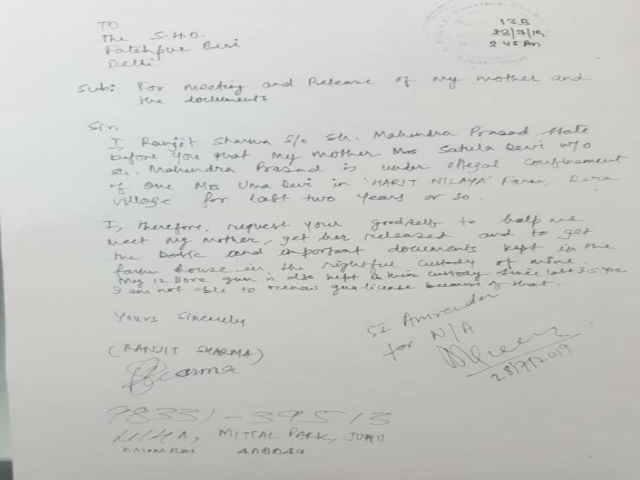 TO
The S.H.O.
Fatehpur Beri
Delhi
13B
28/7/19
2:45 Pm
Sub: For meeting and Release of my mother and
the documents
Sir,
I, Ranjit Sharma S/o Sh. Mahendra Prasad state
before you that my mother Mrs Satula Devi w/o
Sh. Mahendra Prasad is under illegal confinement
of one Mrs Uma Devi in 'HARIT NILAYA' Farm, Dera
village for last two years or so.
I, therefore, request your goodself to help me
meet my mother, get her released and to get
the and important documents kept in the
farm house in the rightful custody of mine.
My 12 Bore gun is also kept in custody since last 3.5 yrs.
I am not able to renew gun license because of that.
Yours Sincerely
SI Amrender
for N/A
28/7/2019
(RANJIT SHARMA)
Sharma
98331-39513
MITTAL PARK, JUHU